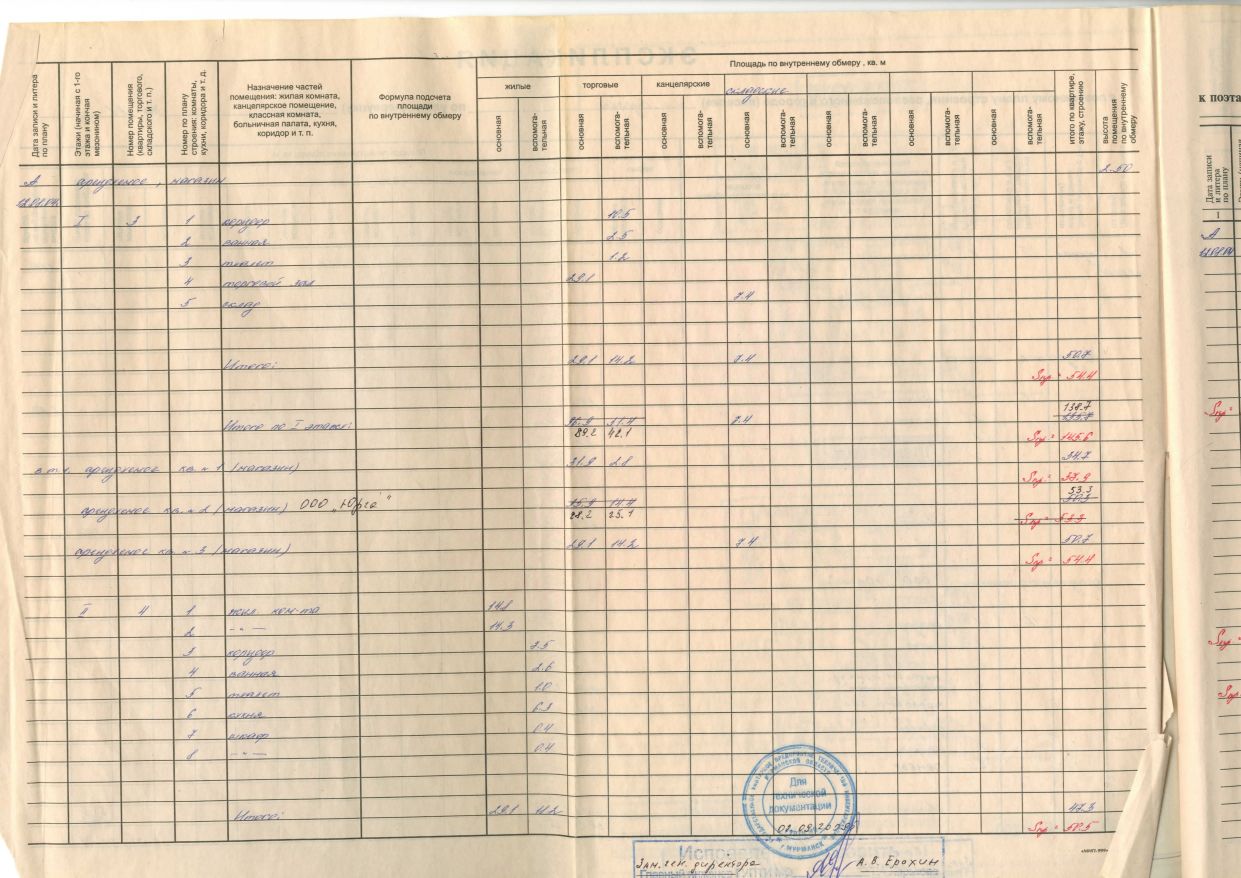 Площадь по внутреннему обмеру , кв. м
Дата записи и литера по плану
Этажи (начиная с 1-го этажа и кончая мезонином)
Номер помещения (квартиры, торгового, складского и т. п.)
Номер по плану строения: комнаты, кухни, коридора и т. д.
Назначение частей помещения: жилая комната, канцелярское помещение, классная комната, больничная палата, кухня, коридор и т. п.
Формула подсчета площади по внутреннему обмеру
жилые торговые канцелярские складские
основная вспомогательная основная вспомогательная основная вспомогательная основная вспомогательная основная вспомогательная основная вспомогательная основная вспомогательная
итого по квартире, этажу, строению
высота помещения по внутреннему обмеру
А арендуемое, магазин 2.50
12.01.04
I 3 1 коридор 10.5
2 ванная 2.5
3 туалет 1.2
4 торговый зал 29.1
5 склад 7.4
Итого: 29.1 14.2 7.4 50.7
Sпр = 54.4
138.7
Итого по I этажу: 31.4 7.4
89.2 42.1
Sпр = 145.6
в т.ч. арендуемое кв. № 1 (магазин) 31.9 2.8 34.7
Sпр = 37.9
53.3
арендуемое кв. № 2 (магазин) ООО „Юрга"
28.2 25.1
Sпр = 53.3
арендуемое кв. № 3 (магазин) 29.1 14.2 7.4 50.7
Sпр = 54.4
II 4 1 жил. ком-та 14.8
2 -"- 14.3
3 коридор 7.5
4 ванная 2.6
5 туалет 1.0
6 кухня 6.3
7 шкаф 0.4
8 -"- 0.4
Итого: 29.1 18.2 47.3
Sпр = 50.5
Для
технической
документации
Г. МУРМАНСК
Зам. ген. директора А. В. Ерохин
к поэта
Дата записи и литера по плану
1
А
12.01.04
Sпр =
Sпр =
Sпр